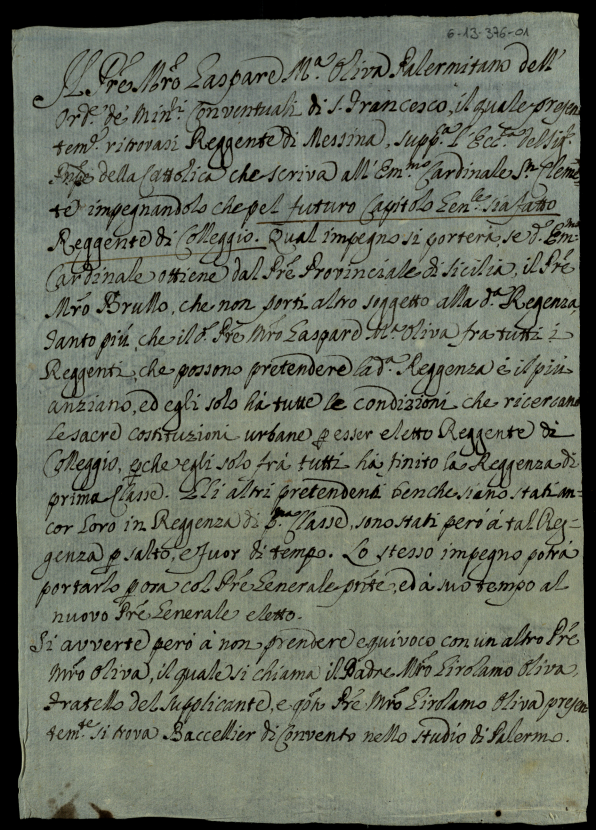 6-13-376-01
Il Prē Mrō Gaspare M.ª Oliva Palermitano dell'
Ord.e de Min.i Conventuali di S. Francesco, il quale presen
tem.e ritrovasi Reggente di Messina, supp.ca l'Ecc.za del Sig.r
Pnpe della Cattolica che scriva all' Em.mo Cardinale Sn Cleme=
te impegnandolo che pel futuro Capitolo Gen.le sia fatto
Reggente di Colleggio. Qual impegno si porterà, se d.o Em.mo
Cardinale ottiene dal Prē Provinciale di Sicilia, il Prē
Mrō Brullo, che non porti altro soggetto alla d.ª Regenza
tanto più, che il d.o Prē Mrō Gaspard M.ª Oliva fra tutti i
Reggenti, che possono pretendere la d.ª Reggenza è il più
anziano, ed egli solo há tutte le condizzioni che ricercano
le sacre costituzioni urbane p esser eletto Reggente di
Colleggio, pche egli solo frà tutti há finito la Reggenza di
prima Classe. Gli altri pretendenti benche siano stati an-
cor loro in Reggenza di p.ma Classe, sono stati però á tal Reg=
genza p salto, e fuor di tempo. Lo stesso impegno potrà
portarlo p ora col Prē Generale pnte, ed á suo tempo al
nuovo Prē Generale eletto.
Si avverte però à non prendere equivoco con un altro Prē
Mrō Oliva, il quale si chiama il Padre Mrō Girolamo Oliva,
fratello del supplicante, e qsto Prē Mrō Girolamo Oliva presen
tem.te si trova Baccellier di Convento nello studio di Palermo.